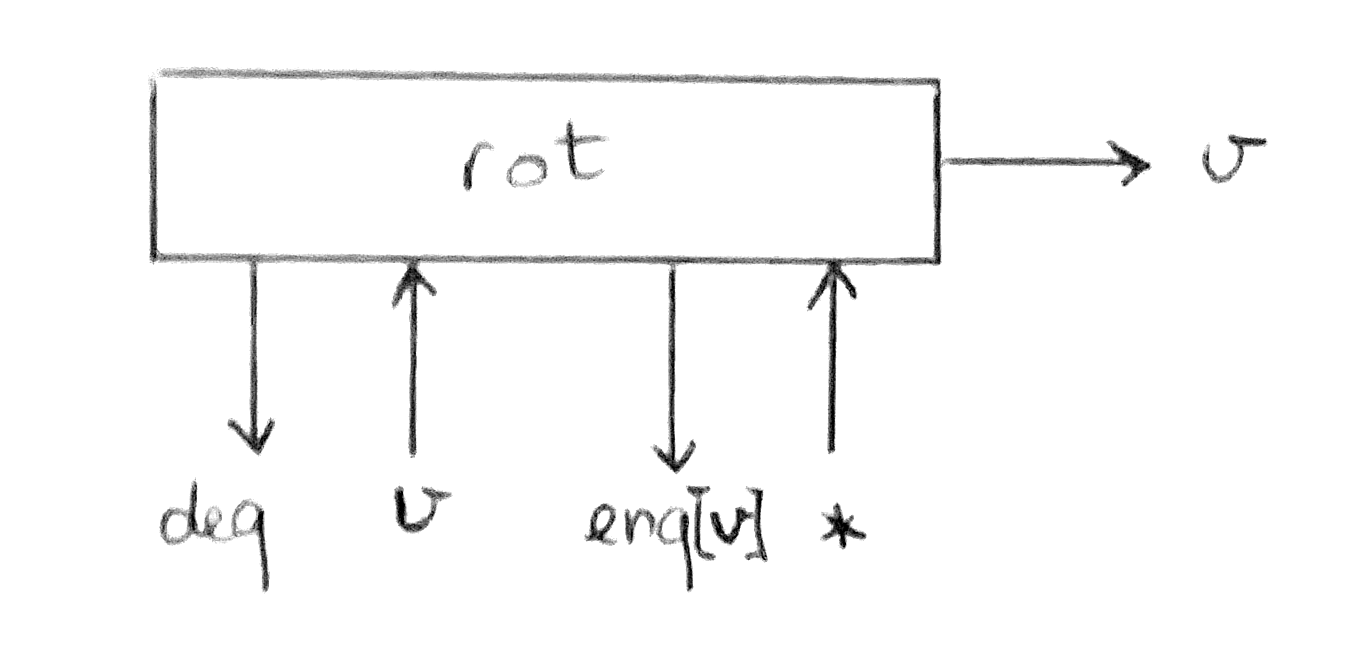 rot
v
deq
v
enq[v]
*